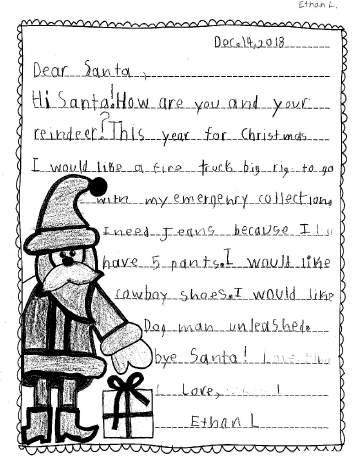 Ethan L.
Dec. 14, 2018
Dear Santa,
Hi Santa! How are you and your
reindeer? This year for Christmas
I would like a fire truck big rig to go
with my emergency collection.
I need Jeans because I
have 5 pants. I would like
cowboy shoes. I would like
Dog man unleashed.
bye Santa! I
Love,
Ethan L